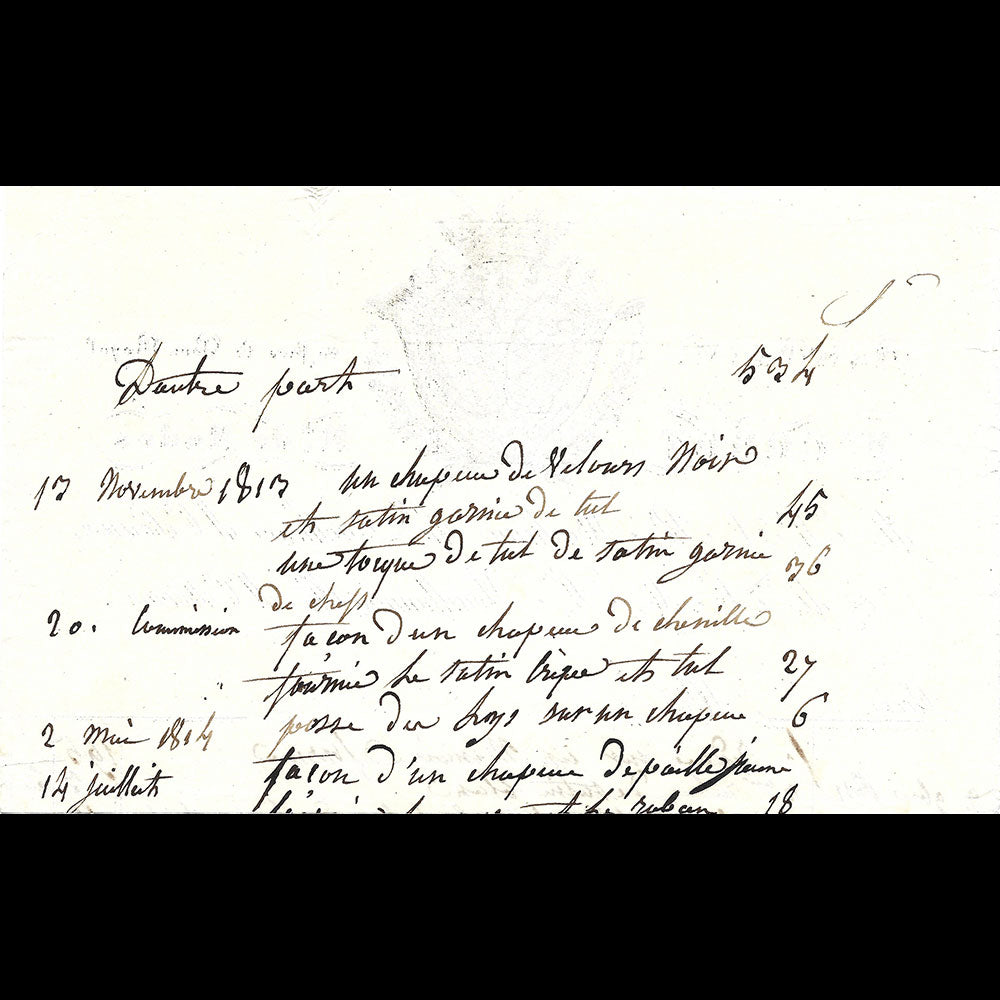 Dautre part 534
13 Novembre 1813 un chapeau de Velours Noir
et satin garnie de tul 45
une toque de tul de satin garnie 36
de chefs
20. Commission façon d'un chapeau de chenille
fournie le satin crepe et tul 27
2 mai 1814 posse des sur un chapeau 6
14 juillet façon d'un chapeau de paille jaune
ruban 18